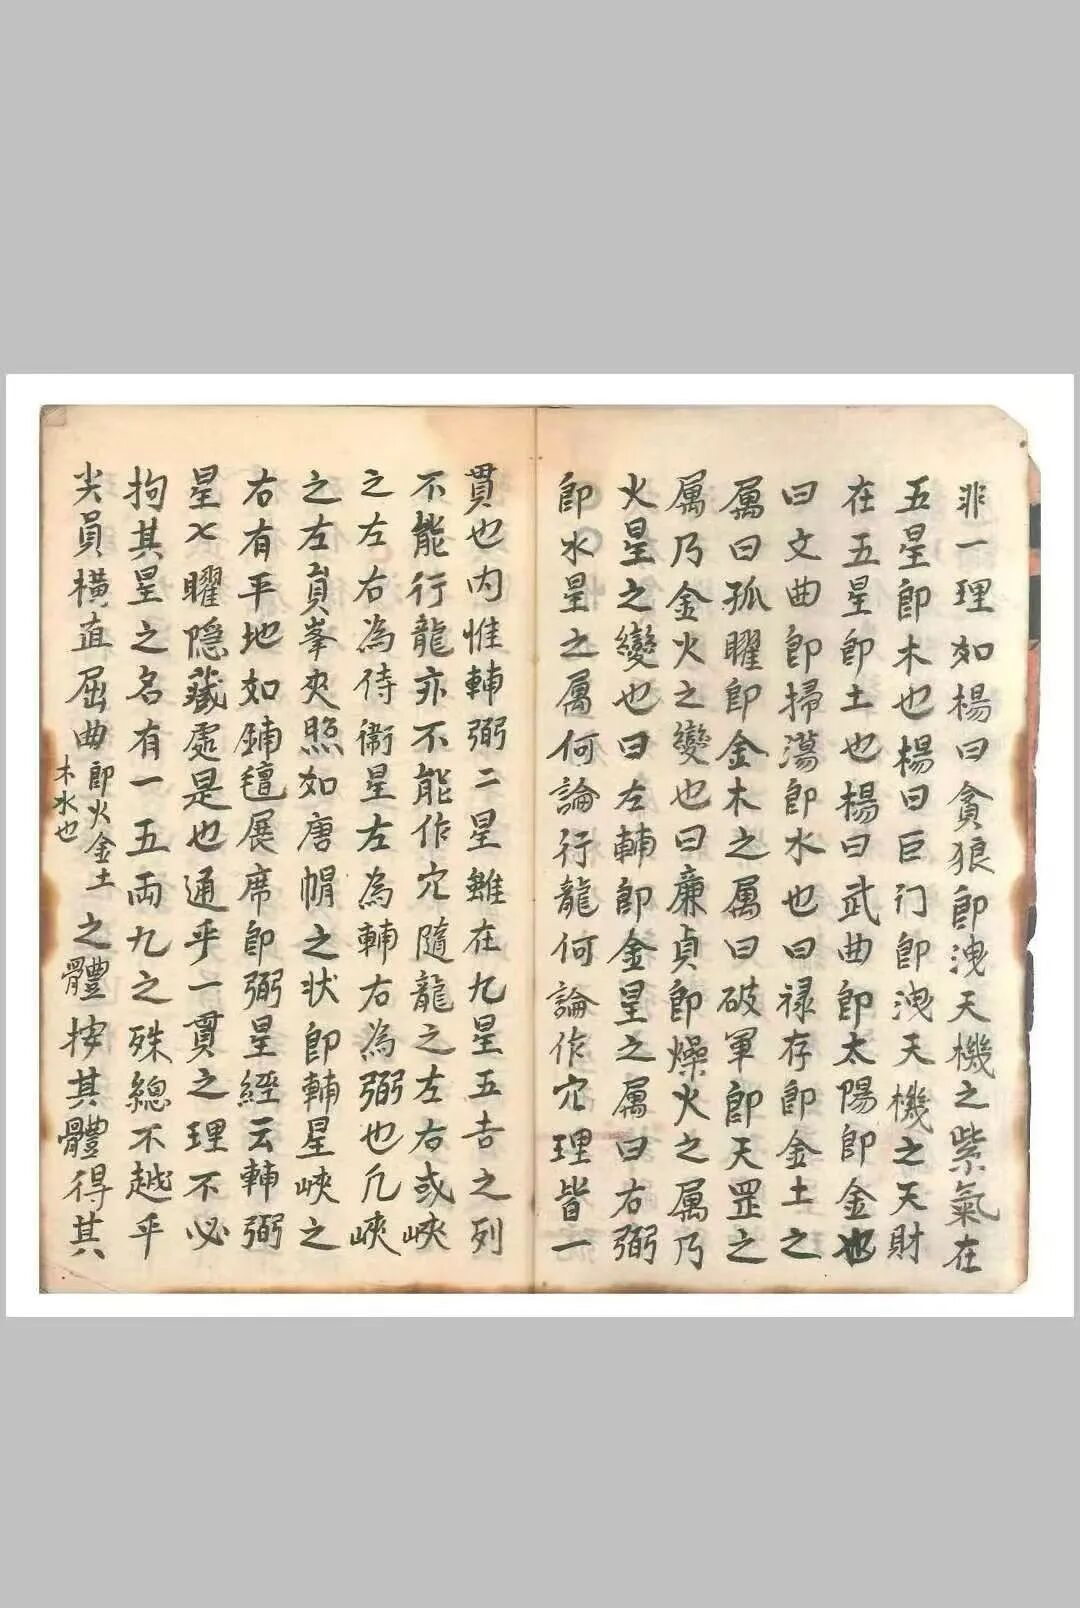 非一理如楊曰貪狼即洩天機之紫氣在
五星即木也楊曰巨门即洩天機之天財
在五星即土也楊曰武曲即太陽即金也
曰文曲即掃蕩即水也曰禄存即金土之
属曰孤曜即金木之属曰破軍即天罡之
属乃金火之變也曰廉貞即燥火之属乃
火星之變也曰左輔即金星之属曰右弼
即水星之属何論行龍何論作穴理皆一
貫也内惟輔弼二星雖在九星五吉之列
不能行龍亦不能作穴隨龍之左右或峽
之左右為侍衛星左為輔右為弼也凡峽
之左右員峯夾照如唐帽之状即輔星峽之
右有平地如鋪氊展席即弼星經云輔弼
星七曜隱藏處是也通乎一貫之理不必
拘其星之名有一五兩九之殊總不越乎
尖員橫直屈曲即火金土木水也之體按其體得其